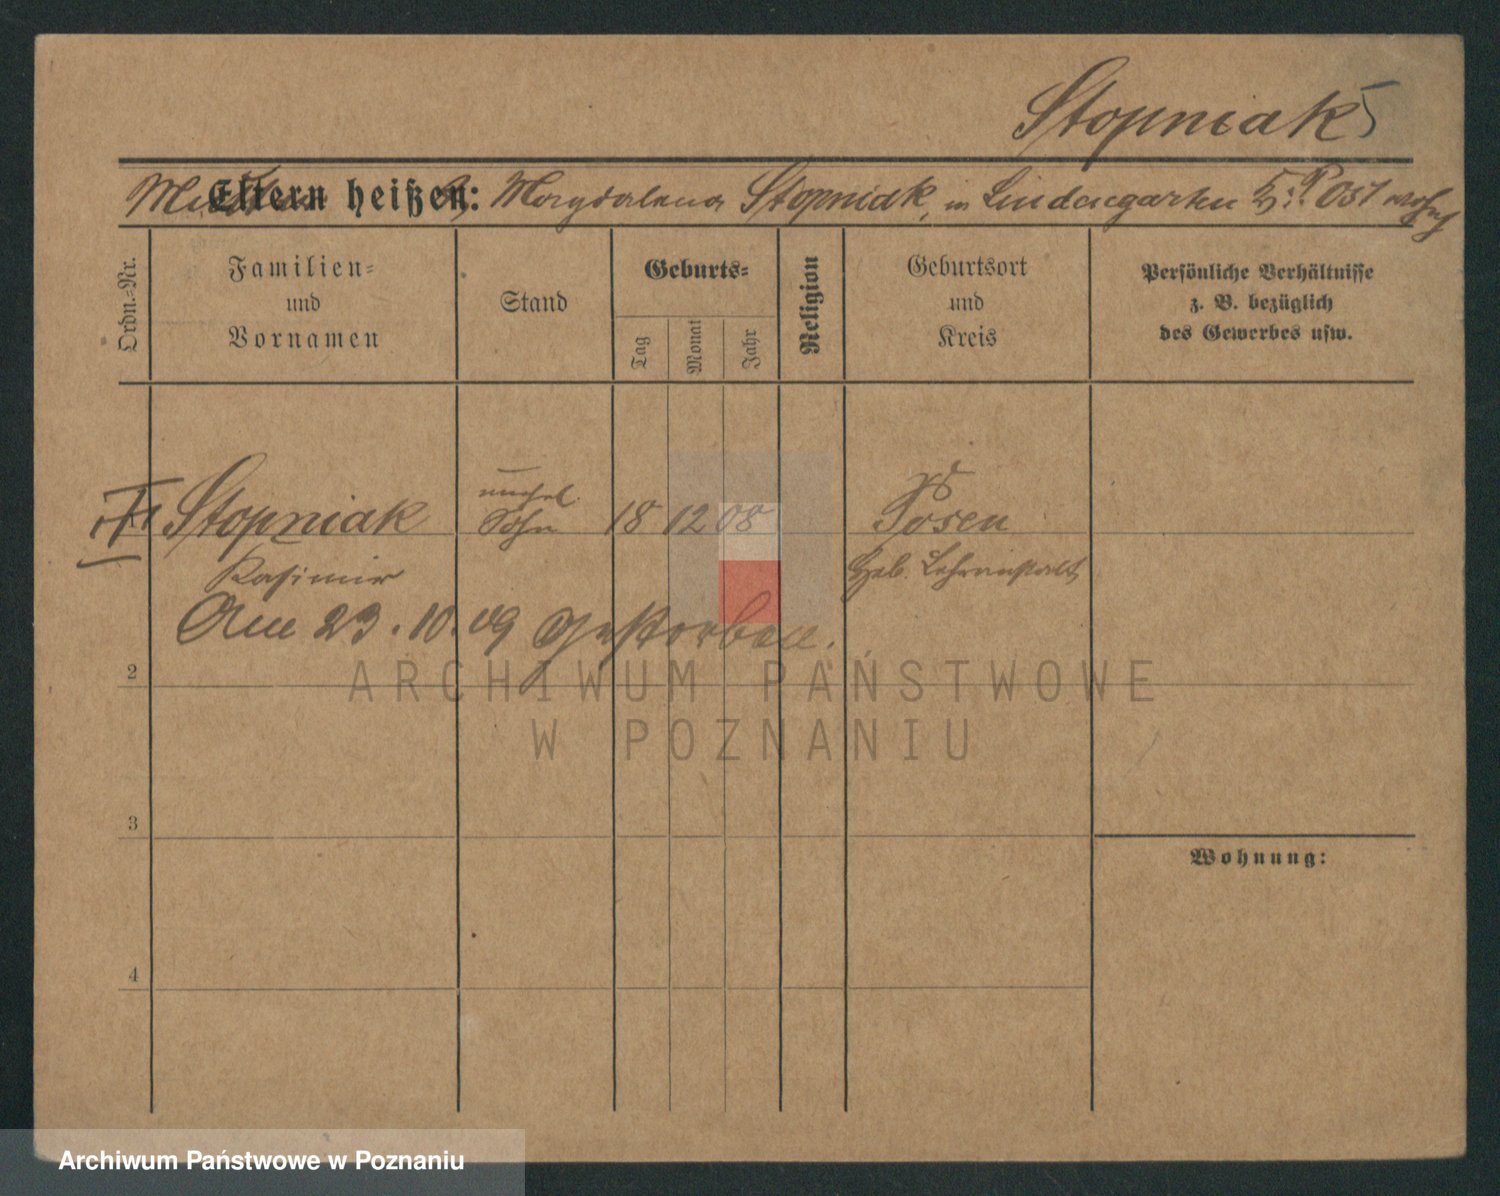 Stopniak
Eltern heißen: Magdalena Stopniak, in Lindengarten Post
Ordn.-Nr.
Familien-
und
Vornamen
Stand
Geburts-
Tag
Monat
Jahr
Religion
Geburtsort
und
Kreis
Persönliche Verhältnisse
z. B. bezüglich
des Gewerbes usw.
unehel.
Stopniak Sohn 18 12 08 Posen
Kasimir Heb. Lehranstalt
Am 23. 10. 09 Gestorben.
2
ARCHIWUM PAŃSTWOWE
W POZNANIU
3
Wohnung:
4
Archiwum Państwowe w Poznaniu